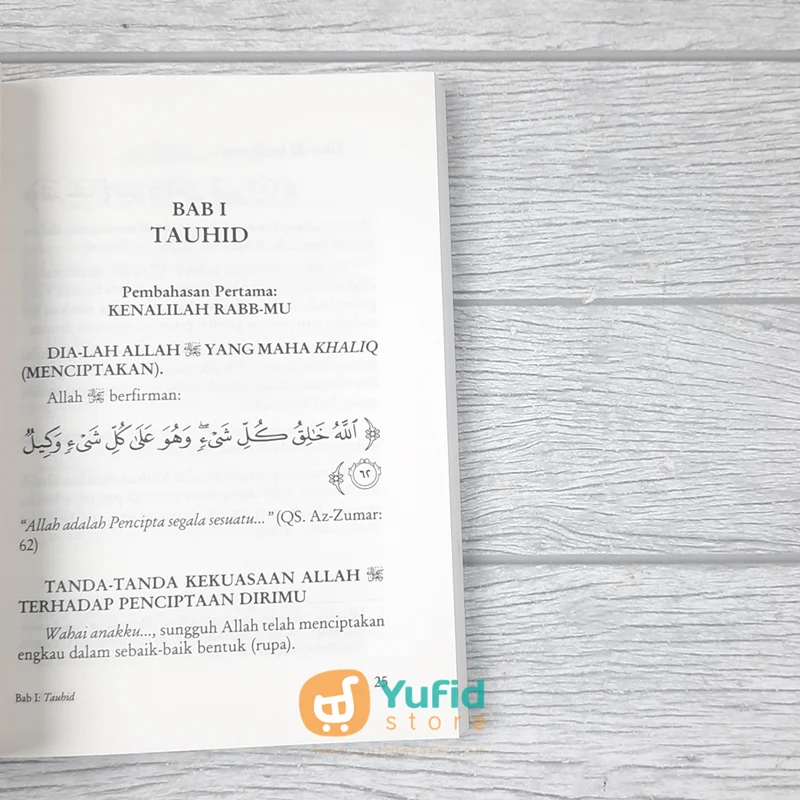 BAB I
TAUHID
Pembahasan Pertama:
KENALILAH RABB-MU
DIA-LAH ALLAH ﷻ YANG MAHA KHALIQ
(MENCIPTAKAN).
Allah ﷻ berfirman:
﴿ ٱللَّهُ خَٰلِقُ كُلِّ شَىْءٍۖ وَهُوَ عَلَىٰ كُلِّ شَىْءٍ وَكِيلٌ
٦٢ ﴾
“Allah adalah Pencipta segala sesuatu...” (QS. Az-Zumar:
62)
TANDA-TANDA KEKUASAAN ALLAH ﷻ
TERHADAP PENCIPTAAN DIRIMU
Wahai anakku..., sungguh Allah telah menciptakan
engkau dalam sebaik-baik bentuk (rupa).
Bab I: Tauhid
25
Yufid
store